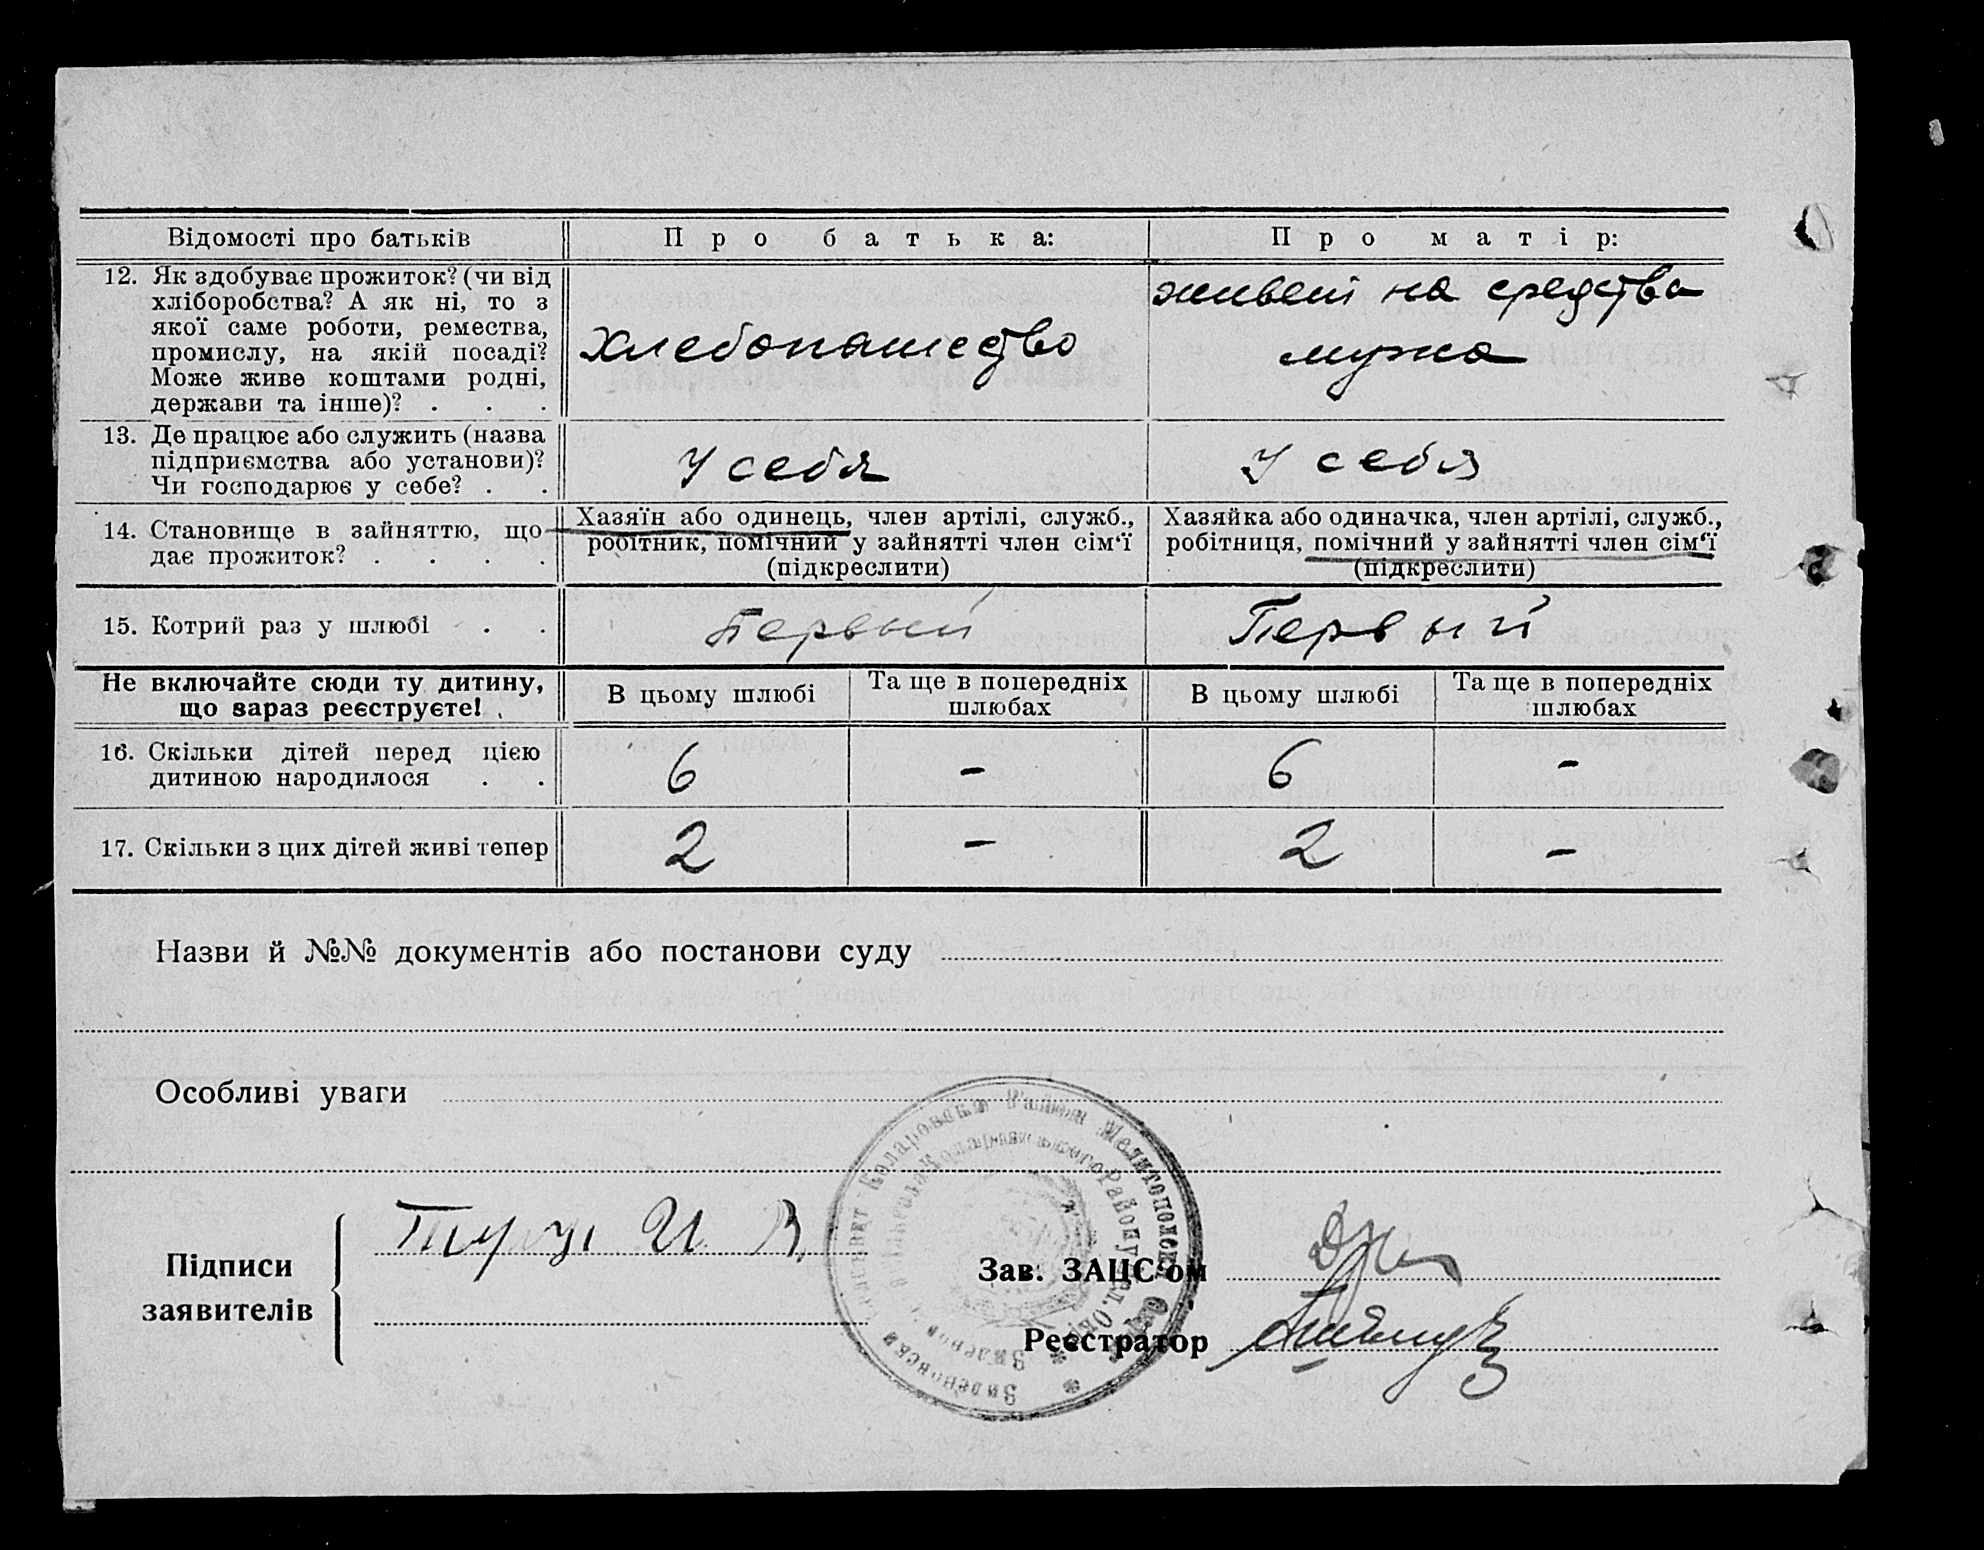 Відомості про батьків
Про батька:
Про матір:
12. Як здобуває прожиток? (чи від
хліборобства? А як ні, то з
якої саме роботи, ремества,
промислу, на якій посаді?
Може живе коштами родні,
держави та інше)? . . .
Хлебопашество
живет на средства
мужа
13. Де працює або служить (назва
підприємства або установи)?
Чи господарює у себе? . .
У себя
У себя
14. Становище в зайняттю, що
дає прожиток? . . . .
Хазяїн або одинець, член артілі, служб.,
робітник, помічний у зайнятті член сім'ї
(підкреслити)
Хазяйка або одиначка, член артілі, служб.,
робітниця, помічний у зайнятті член сім'ї
(підкреслити)
15. Котрий раз у шлюбі . .
Первый
Первый
Не включайте сюди ту дитину,
що зараз реєструєте!
В цьому шлюбі
Та ще в попередніх
шлюбах
В цьому шлюбі
Та ще в попередніх
шлюбах
16. Скільки дітей перед цією
дитиною народилося . .
6
–
6
–
17. Скільки з цих дітей живі тепер
2
–
2
–
Назви й №№ документів або постанови суду
Особливі уваги
Підписи
заявителів
И. В.
Зав. ЗАЦС'ом
Реєстратор
Коларовска Района Мелитопольск